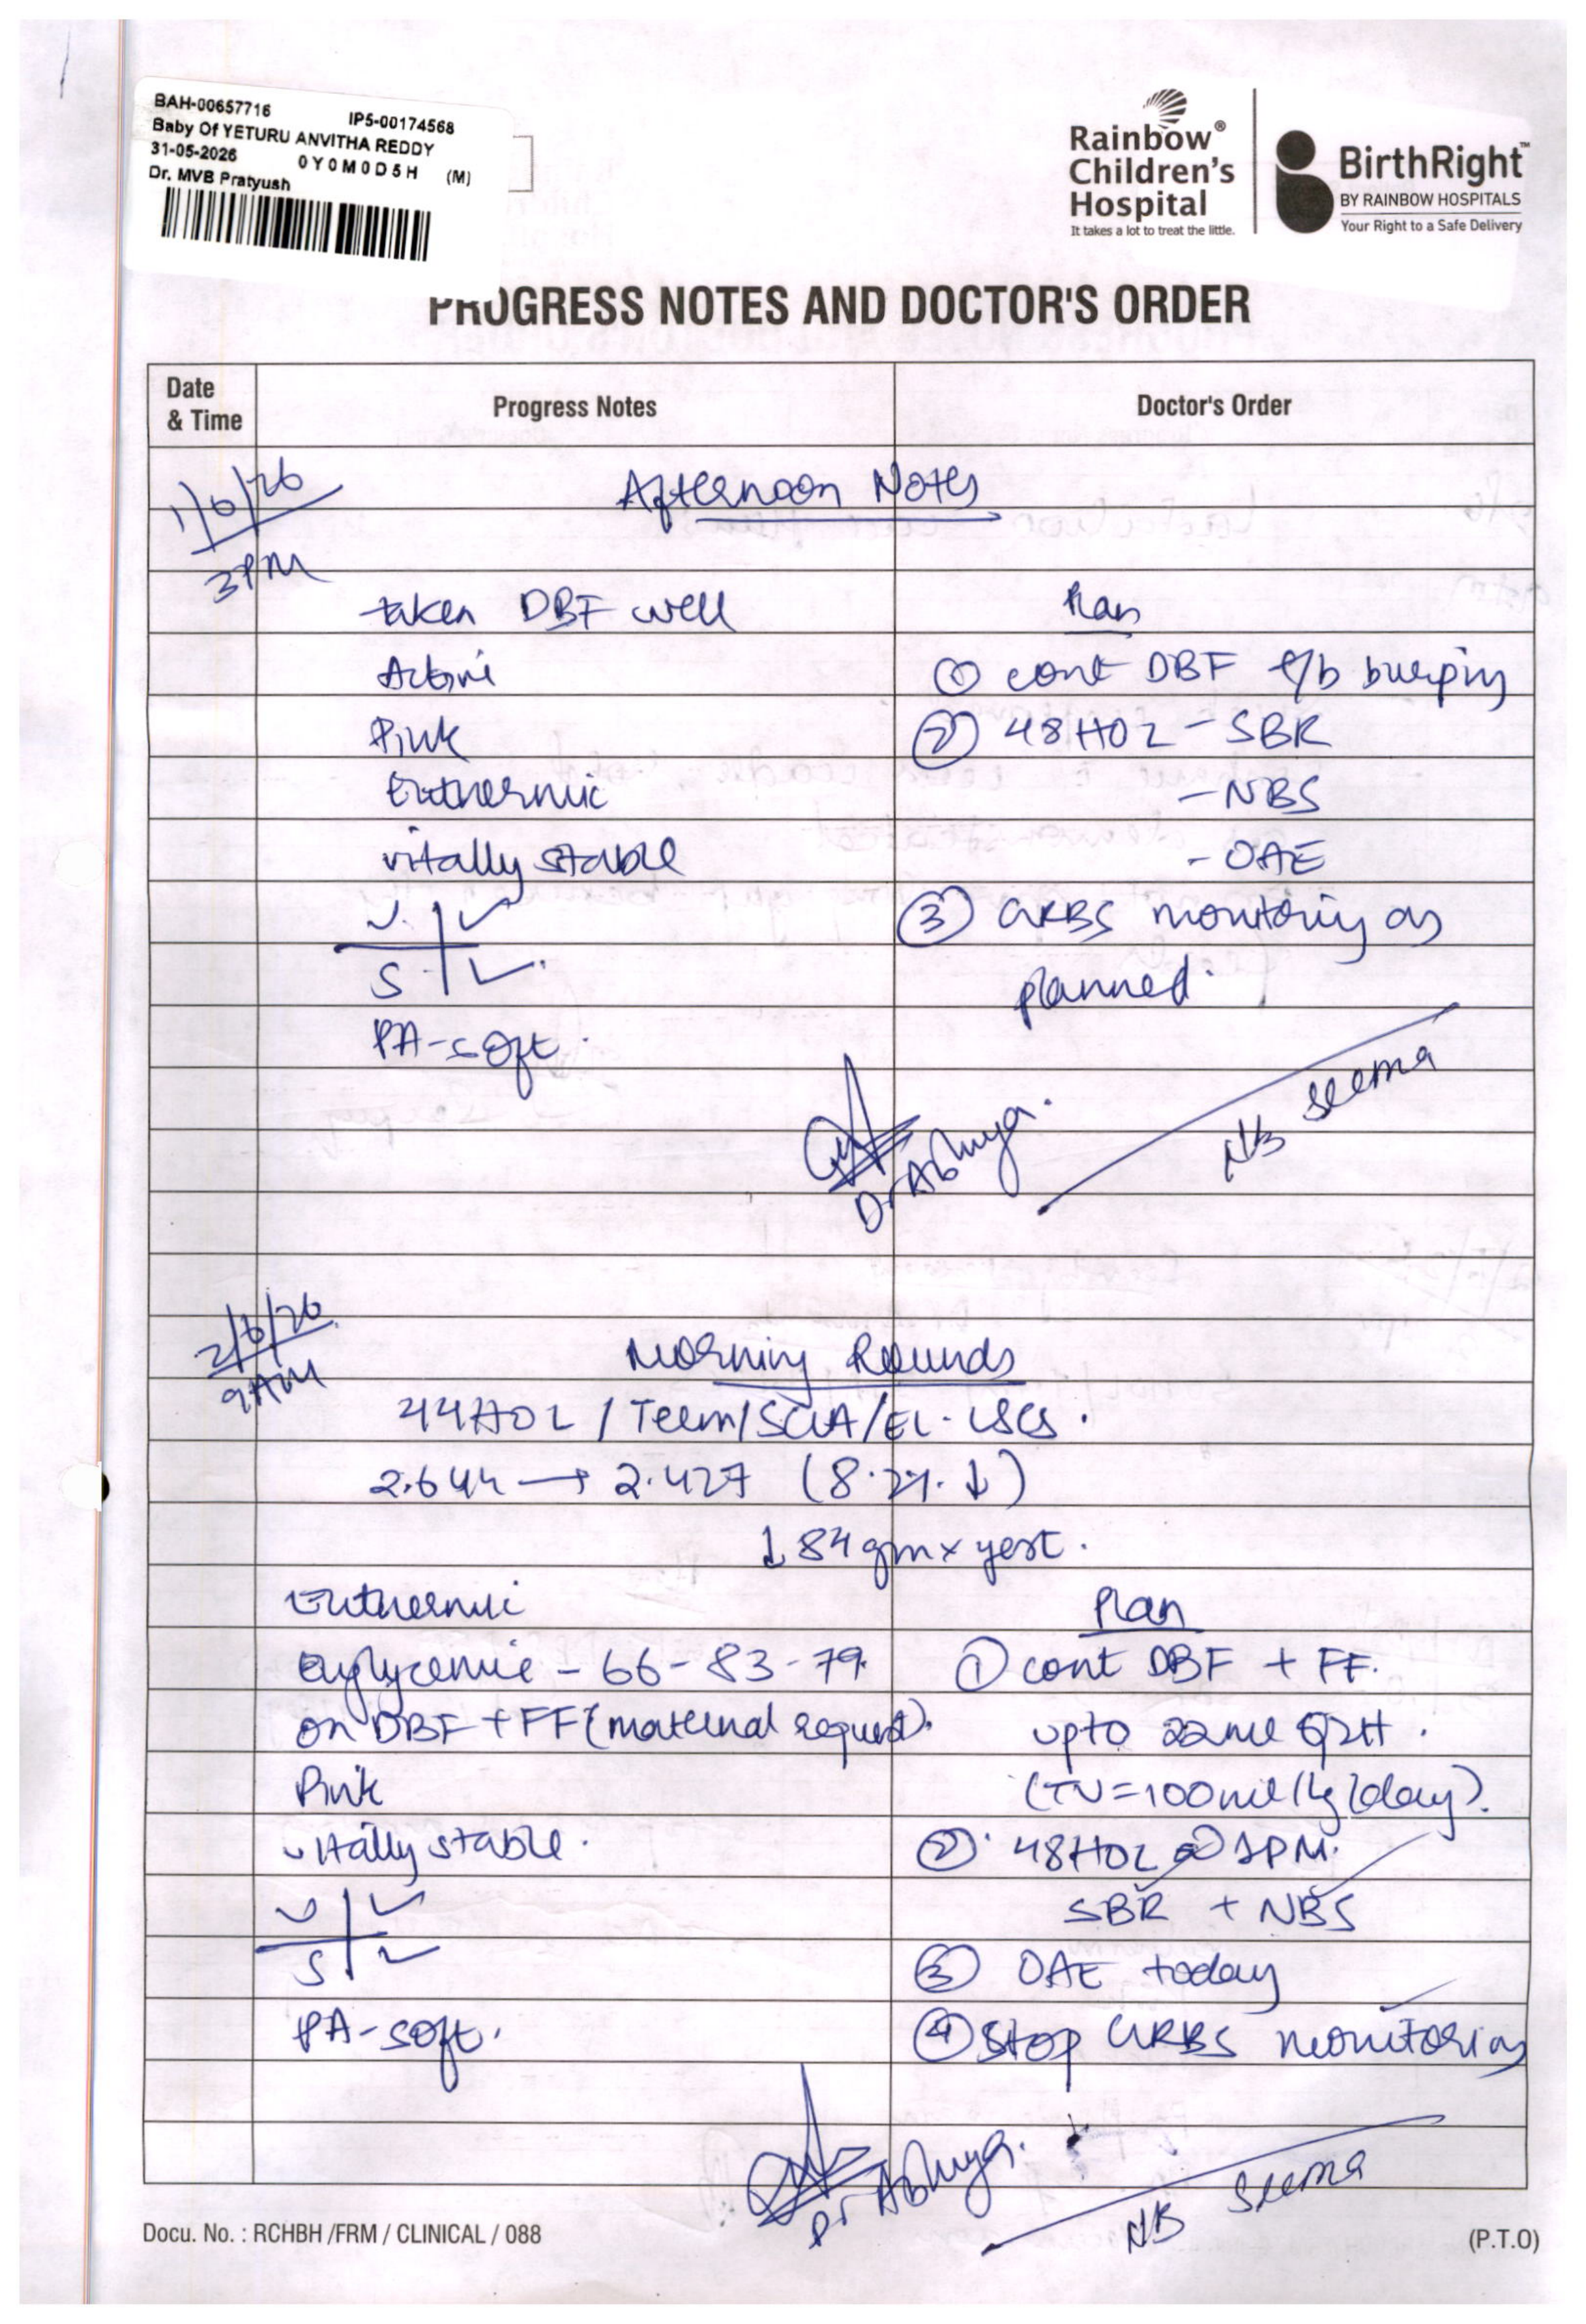 BAH-00657716 IP5-00174568
Baby Of YETURU ANVITHA REDDY
31-05-2026 0Y0M0D5H (M)
Dr. MVB Pratyush
Rainbow®
Children's
Hospital
It takes a lot to treat the little.
BirthRight™
BY RAINBOW HOSPITALS
Your Right to a Safe Delivery
PROGRESS NOTES AND DOCTOR'S ORDER
Date & Time Progress Notes Doctor's Order
1/6/26 Afternoon Notes
3PM
taken DBF well Plan
Active ① cont DBF f/b burping
Pink ② 48HOL - SBR
Euthermic - NBS
vitally stable - OAE
③ GRBS monitoring as
S planned.
PA-soft.
Dr Abhuya. NB Seema
2/6/26
9AM Morning Rounds
44HOL / Term/SGA/EL-LSCS.
2.644 → 2.427 (8.2%. ↓)
↓ 84gm x yest.
Euthermic Plan
Euglycemic - 66-83-79. ① cont DBF + FF.
on DBF + FF (maternal request). upto 22ml Q2H.
Pink (TV=100ml/kg/day).
vitally stable. ② 48HOL @ 1PM.
SBR + NBS
S ③ OAE today
PA-soft. ④ Stop GRBS monitoring
Dr Abhuya. NB Seema
Docu. No. : RCHBH /FRM / CLINICAL / 088 (P.T.O)